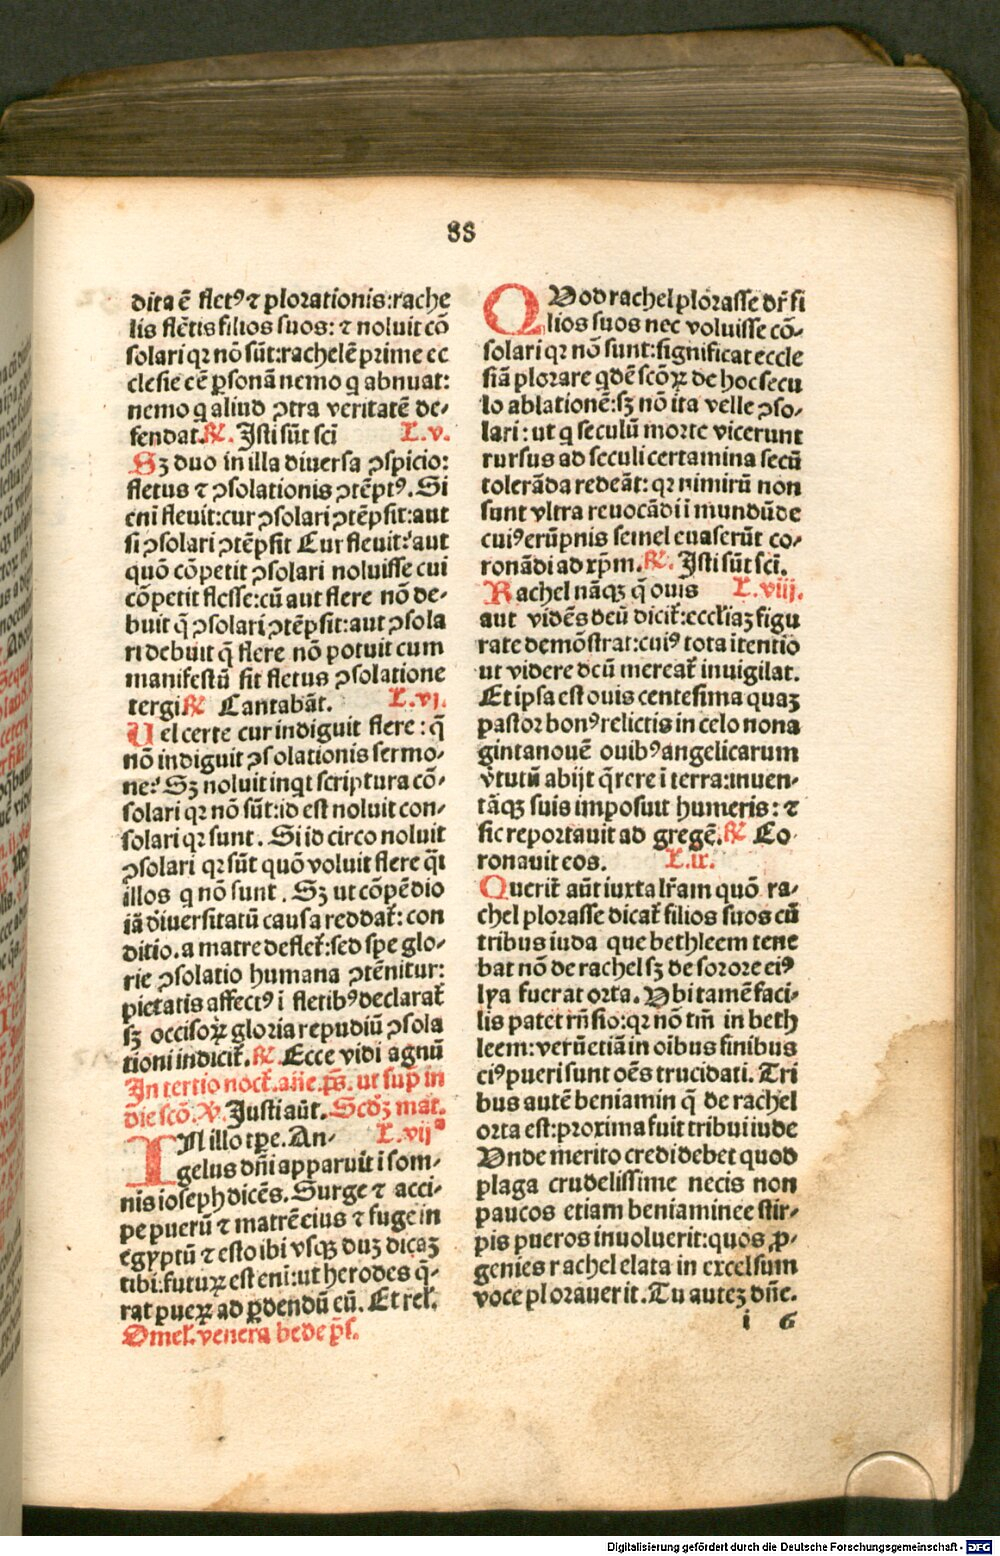 88
dita ē fletꝰ ⁊ plorationis: rache
lis flētis filios suos: ⁊ noluit cō
solari qꝛ nō sūt: rachelē prime ec
clesie eē ꝑsonā nemo q abnuat:
nemo q aliud ꝯtra veritatē de-
fendat. ℟. Isti sūt sci L. v.
Sꝫ duo in illa diuersa ꝯspicio:
fletus ⁊ ꝯsolationis ꝯtēptꝰ. Si
eni fleuit: cur ꝯsolari ꝯtēpsit: aut
si ꝯsolari ꝯtēpsit Cur fleuit? aut
quō cōpetit ꝯsolari noluisse cui
cōpetit flesse: cū aut flere nō de-
buit q̄ ꝯsolari ꝯtēpsit: aut ꝯsola
ri debuit q̄ flere nō potuit cum
manifestū sit fletus ꝯsolatione
tergi ℟ Cantabāt. L. vj.
Uel certe cur indiguit flere: q̄
nō indiguit ꝯsolationis sermo-
ne? Sꝫ noluit inqt scriptura cō-
solari qꝛ nō sūt: id est noluit con-
solari qꝛ sunt. Si id circo noluit
ꝯsolari qꝛ sūt quō voluit flere q̄si
illos q nō sunt. Sꝫ ut cōpēdio
iā diuersitatū causa reddat̄: con
ditio. a matre deflet̄: sed spe glo-
rie ꝯsolatio humana ꝯtēnitur:
pietatis affectꝰ i fletibꝰ declarat̄
sꝫ occisoꝝ gloria repudiū ꝯsola
tioni indicit̄. ℟. Ecce vidi agnū
In tertio noct̄. añe. ps̄. ut sup̄ in
die scō. ℣. Justi aūt. Scdꝫ mat.
IN illo tꝑe. An- L. vij
gelus dñi apparuit i som-
nis ioseph dicēs. Surge ⁊ acci-
pe puerū ⁊ matrē eius ⁊ fuge in
egyptū ⁊ esto ibi vsqꝫ duꝫ dicaꝫ
tibi. futuꝝ est eni: ut herodes q̄-
rat pueꝝ ad ꝑdendū eū. Et rel̄.
Omel̄. venera bede p̄s.
QUod rachel plorasse dr̄ fi
lios suos nec voluisse cō-
solari qꝛ nō sunt: significat eccle
siā plorare qdē scōꝝ de hoc secu
lo ablationē: sꝫ nō ita velle ꝯso-
lari: ut q seculū morte vicerunt
rursus ad seculi certamina secū
tolerāda redeāt: qꝛ nimirū non
sunt vltra reuocādi i mundū de
cuiꝰ erūpnis semel euaserūt co-
ronādi ad xp̄m. ℟. Isti sūt sci.
Rachel nāqꝫ q̄ ouis L. viij.
aut vidēs deū dicit̄: eccl̄iaꝫ figu
rate demōstrat: cuiꝰ tota itentio
ut videre deū mereat̄ inuigilat.
Et ipsa est ouis centesima quaꝫ
pastor bonꝰ relictis in celo nona
gintanouē ouibꝰ angelicarum
v̄tutū abijt q̄rere i terra: inuen-
tāqꝫ suis imposuit humeris: ⁊
sic reportauit ad gregē. ℟ Co-
ronauit eos. L. ix.
Querit̄ aūt iuxta lr̄am quō ra-
chel plorasse dicat̄ filios suos cū
tribus iuda que bethleem tene
bat nō de rachel sꝫ de sorore eiꝰ
lya fuerat orta. Vbi tamē faci-
lis patet rn̄sio: qꝛ nō tm̄ in beth
leem: verū etiā in oibus finibus
eiꝰ pueri sunt oēs trucidati. Tri
bus autē beniamin q̄ de rachel
orta est: proxima fuit tribui iude
Vnde merito credi debet quod
plaga crudelissime necis non
paucos etiam beniaminee stir-
pis pueros inuoluerit: quos ꝓ-
genies rachel elata in excelsum
voce plorauerit. Tu auteꝫ dñe.
i 6
Digitalisierung gefördert durch die Deutsche Forschungsgemeinschaft - DFG